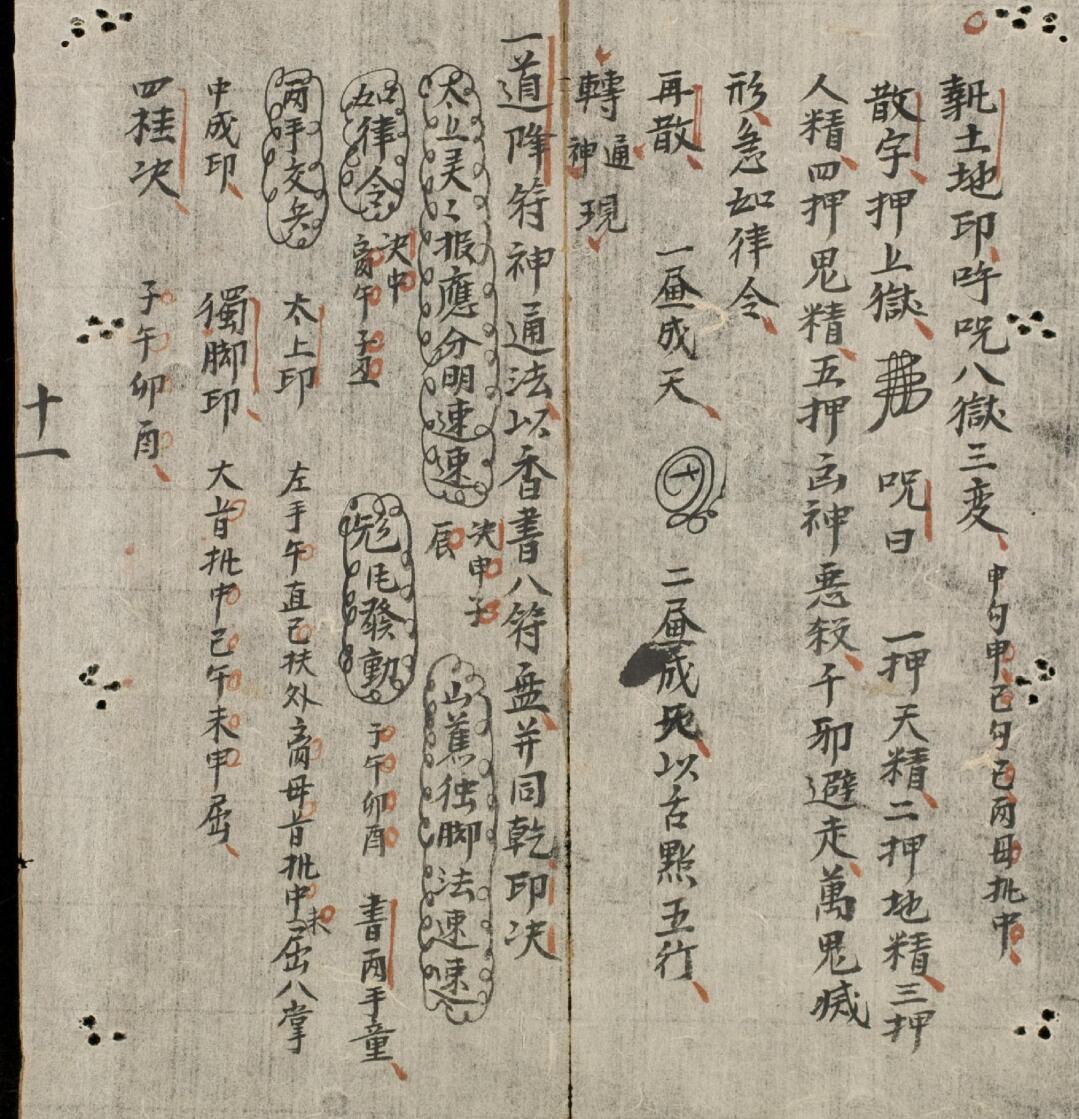 執土地印吽咒八獄三変 中勾申己勾己兩母批中
散字押上獄 咒曰 一押天精二押地精三押
人精四押鬼精五押凶神悪殺千邪避走萬鬼滅
形急如律令
再散 一畫成天 二畫成地以舌點五行
轉神通現
一道降符神通法以香書八符盃并同乾印决
太上灵〻报應分明速速 决申子辰 山蕉独脚法速速
如律令 决中离午子丑 发動 子午卯酉 書两手童
两手交叁 太上印 左手午直己扶外离母首批中未屈八掌
中成印 獨脚印 大首批中己午未申屈
四桂决 子午卯酉
十一